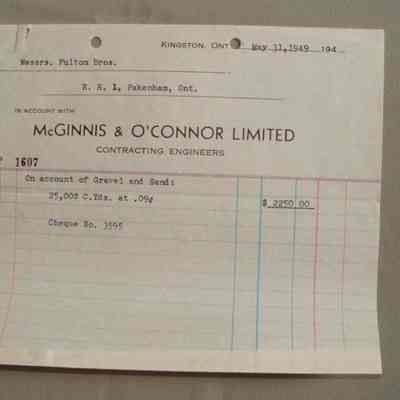 KINGSTON, ONT. May 31, 1949 194
Messrs. Fulton Bros.
R. R. 1, Pakenham, Ont.
IN ACCOUNT WITH
McGINNIS & O'CONNOR LIMITED
CONTRACTING ENGINEERS
1607
On account of Gravel and Sand:
25,000 C.Yds. at .09¢ $ 2250 00
Cheque No. 3595